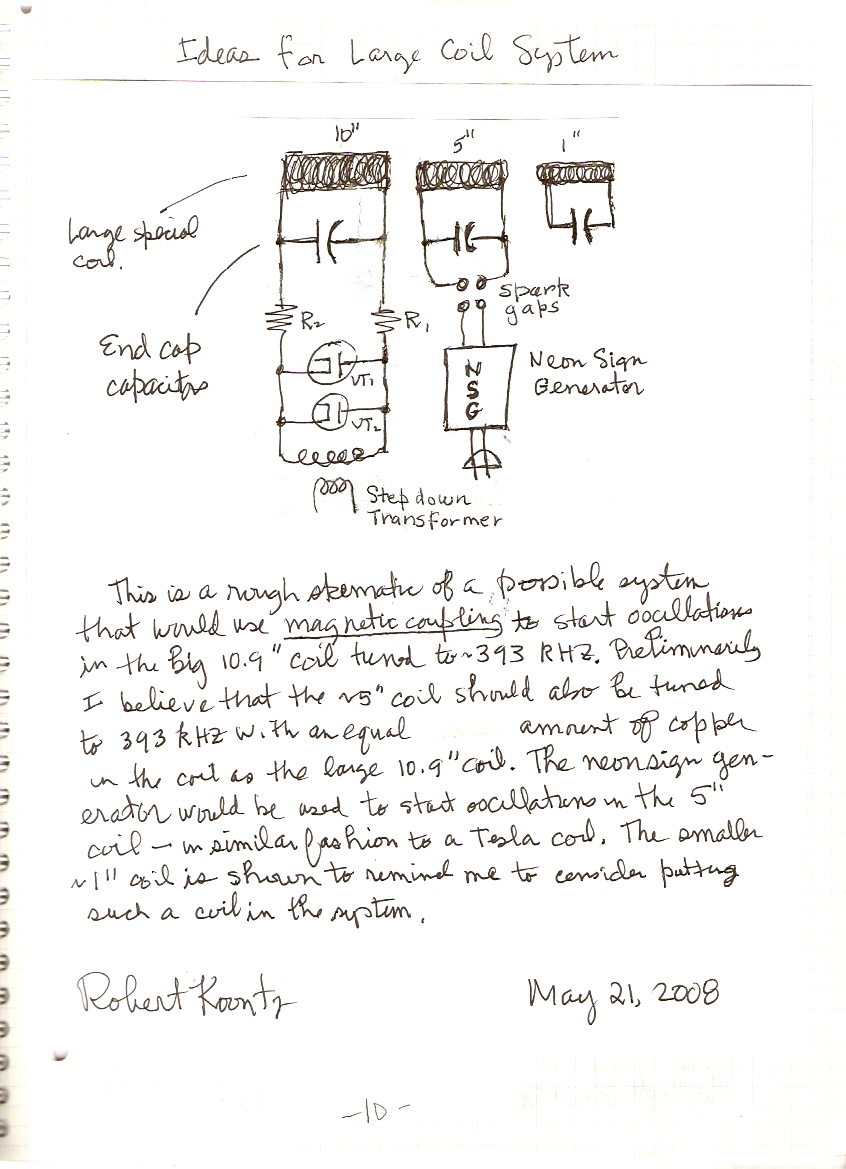 Ideas for Large Coil System
10"
5"
1"
Large special
coil.
End cap
capacitors
R2
R1
VT1
VT2
Spark
gaps
NSG
Neon Sign
Generator
Step down
Transformer
This is a rough skematic of a possible system
that would use magnetic coupling to start oocillations
in the Big 10.9" coil tuned to ~393 KHZ. Preliminarily
I believe that the ~5" coil should also be tuned
to 393 kHZ with an equal amount of copper
in the coil as the large 10.9" coil. The neonsign gen-
erator would be used to start oocillations in the 5"
coil – in similar fashion to a Tesla coil. The smaller
~1" coil is shown to remind me to consider putting
such a coil in the system.
Robert Koontz
May 21, 2008
-10-